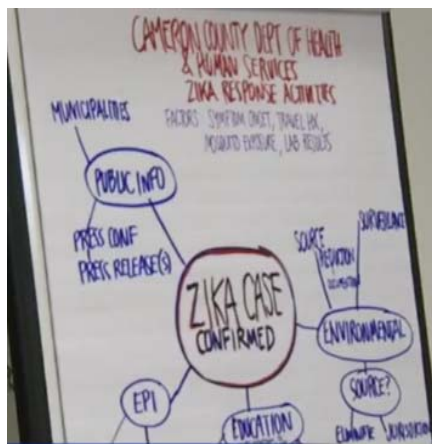 CAMERON COUNTY DEPT OF HEALTH
& HUMAN SERVICES
ZIKA RESPONSE ACTIVITIES
FACTORS: SYMPTOM ONSET, TRAVEL HX,
MOSQUITO EXPOSURE, LAB RESULTS
MUNICIPALITIES
PUBLIC INFO
PRESS CONF
PRESS RELEASE(S)
SOURCE
REDUCTION
SURVEILLANCE
ZIKA CASE
CONFIRMED
ENVIRONMENTAL
SOURCE?
ELIMINATE
EPI
EDUCATION